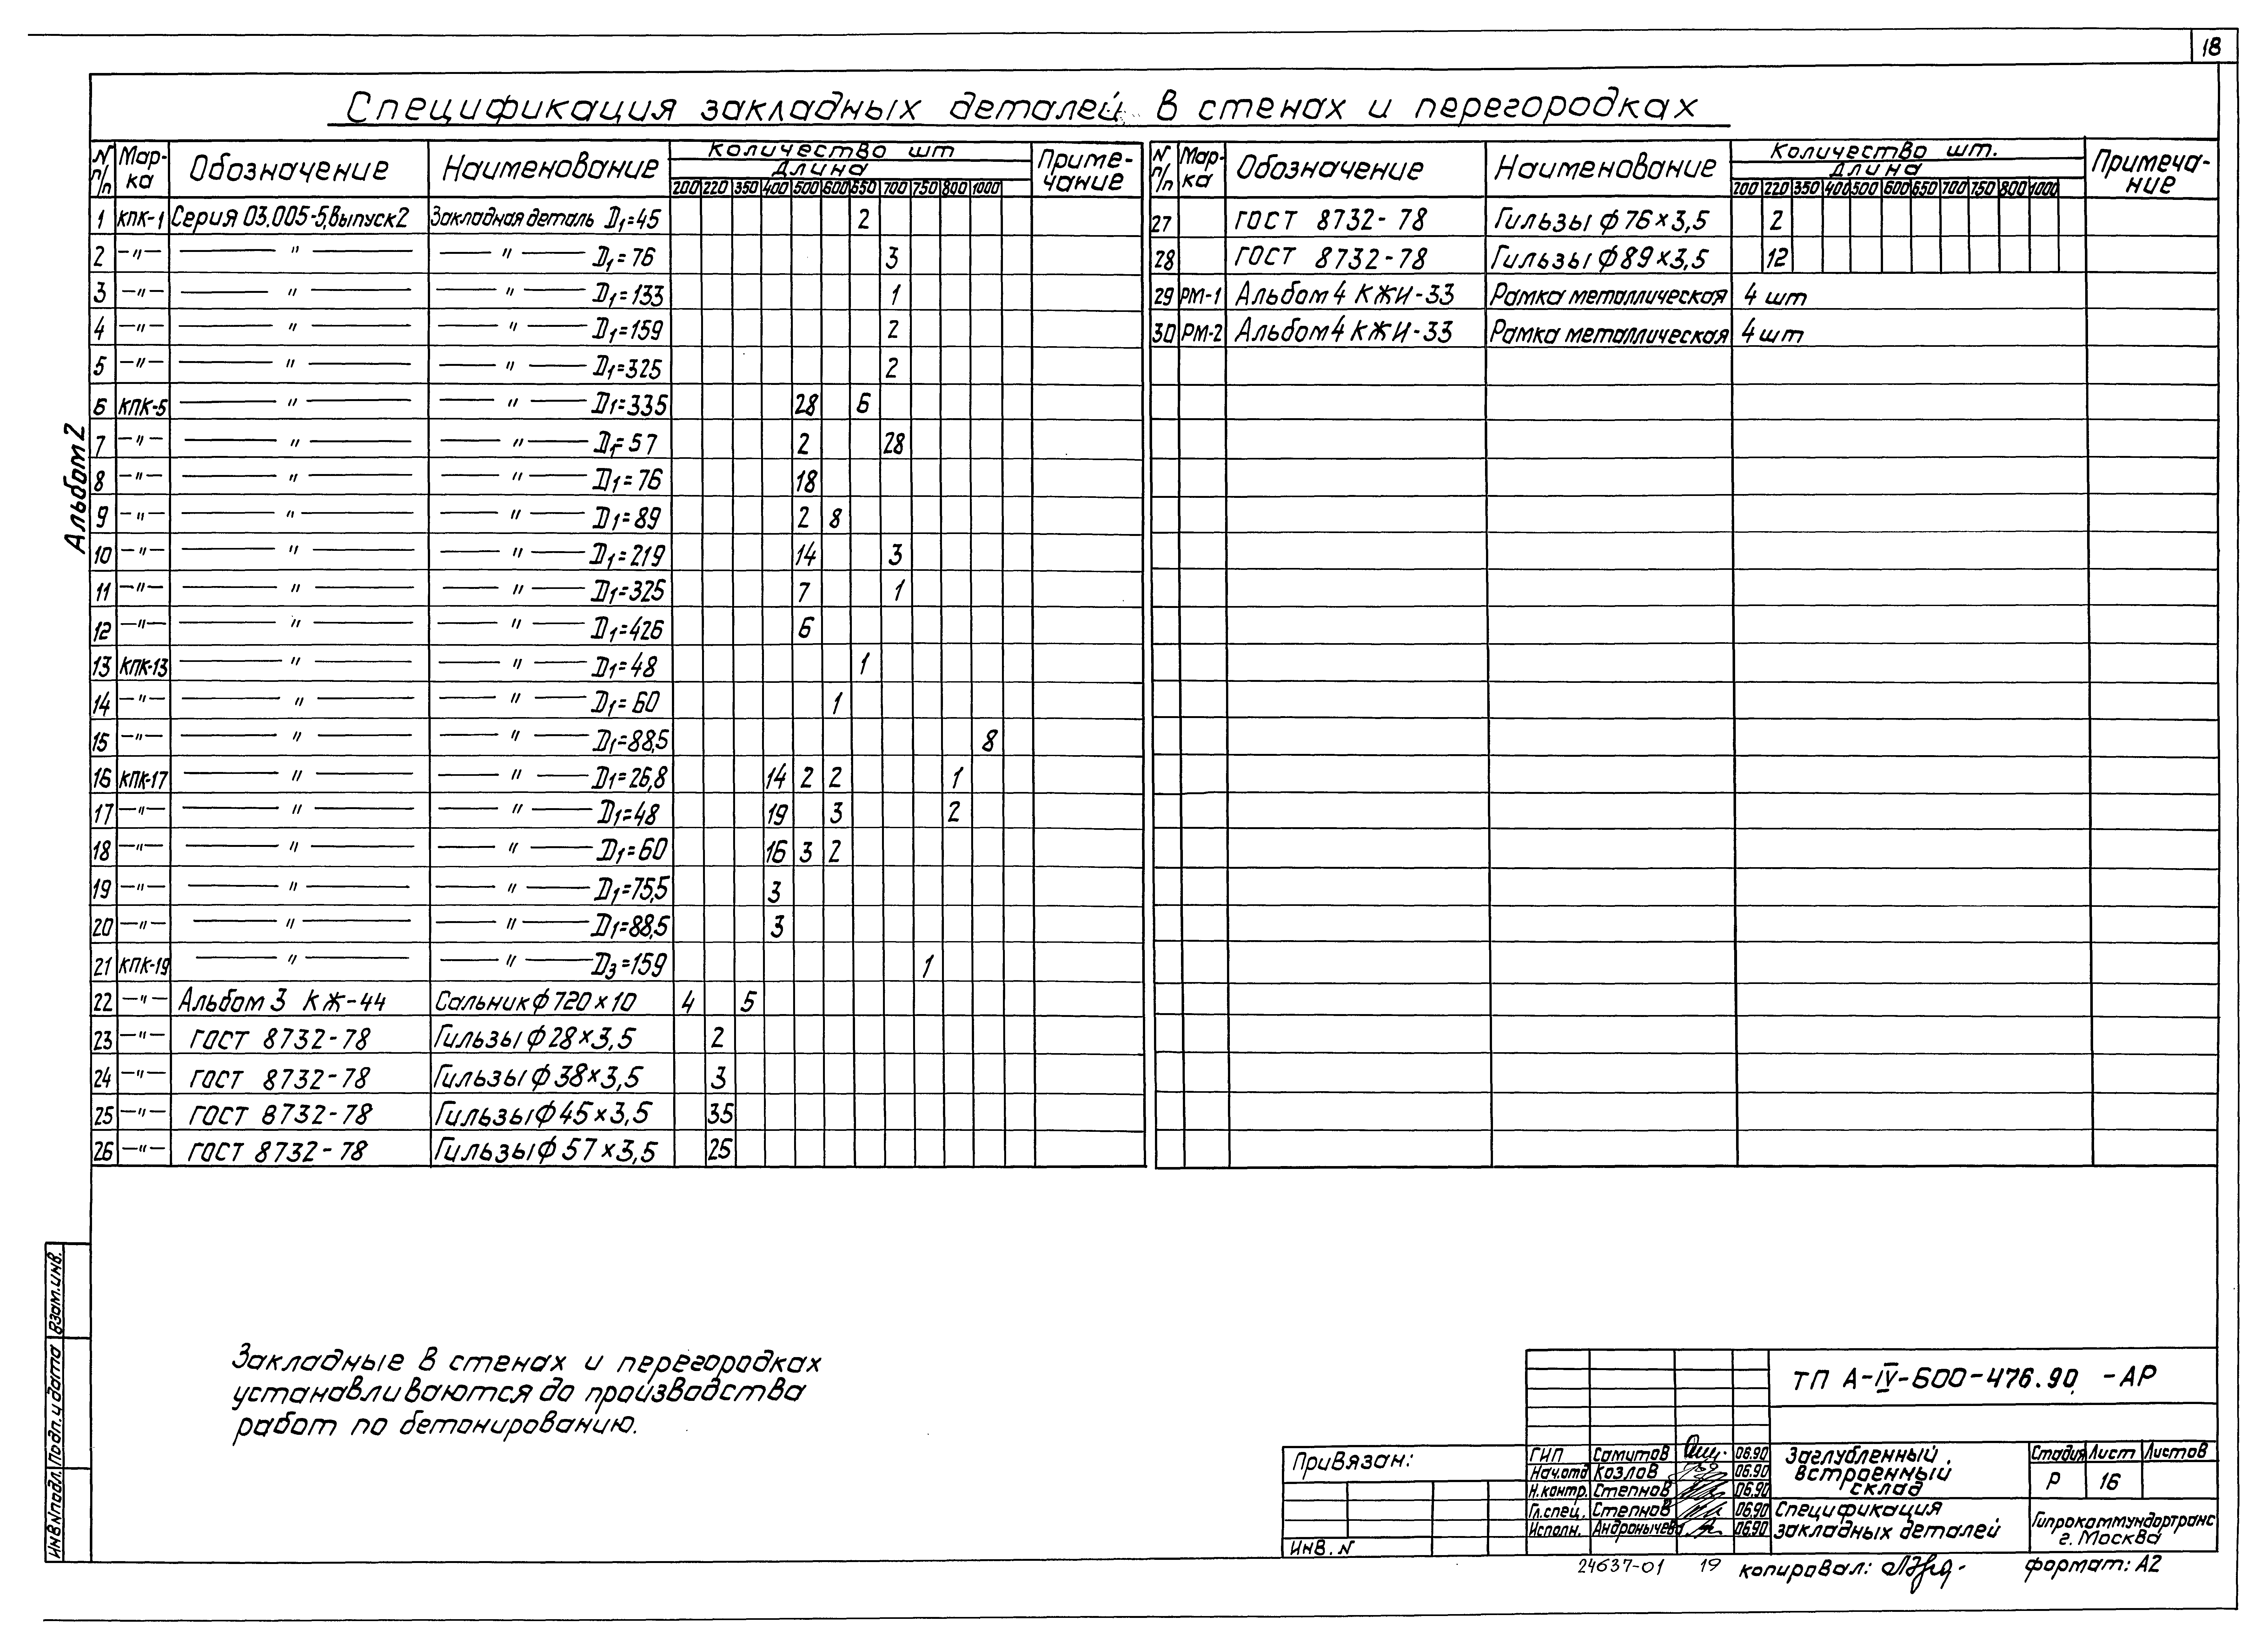 18
Спецификация закладных деталей в стенах и перегородках
N п/п Мар-ка Обозначение Наименование Количество шт Длина 200 220 350 400 500 600 650 700 750 800 1000 Приме-чание
1 КПК-1 Серия 03.005-5, Выпуск 2 Закладная деталь D1=45 2
2 —"— —"— —"— D1=76 3
3 —"— —"— —"— D1=133 1
4 —"— —"— —"— D1=159 2
5 —"— —"— —"— D1=325 2
6 КПК-5 —"— —"— D1=335 28 6
7 —"— —"— —"— D1=57 2 28
8 —"— —"— —"— D1=76 18
9 —"— —"— —"— D1=89 2 8
10 —"— —"— —"— D1=219 14 3
11 —"— —"— —"— D1=325 7 1
12 —"— —"— —"— D1=426 6
13 КПК-13 —"— —"— D1=48 1
14 —"— —"— —"— D1=60 1
15 —"— —"— —"— D1=88,5 8
16 КПК-17 —"— —"— D1=26,8 14 2 2 1
17 —"— —"— —"— D1=48 19 3 2
18 —"— —"— —"— D1=60 16 3 2
19 —"— —"— —"— D1=75,5 3
20 —"— —"— —"— D1=88,5 3
21 КПК-19 —"— —"— D3=159 1
22 —"— Альбом 3 КЖ-44 Сальник ф 720×10 4 5
23 —"— ГОСТ 8732-78 Гильзы ф 28×3,5 2
24 —"— ГОСТ 8732-78 Гильзы ф 38×3,5 3
25 —"— ГОСТ 8732-78 Гильзы ф 45×3,5 35
26 —"— ГОСТ 8732-78 Гильзы ф 57×3,5 25
N п/п Мар-ка Обозначение Наименование Количество шт. Длина 200 220 350 400 500 600 650 700 750 800 1000 Примеча-ние
27 ГОСТ 8732-78 Гильзы ф 76×3,5 2
28 ГОСТ 8732-78 Гильзы ф 89×3,5 12
29 РМ-1 Альбом 4 КЖИ-33 Рамка металлическая 4 шт
30 РМ-2 Альбом 4 КЖИ-33 Рамка металлическая 4 шт
Альбом 2
Закладные в стенах и перегородках
устанавливаются до производства
работ по бетонированию.
Инв N подл. Подп. и дата Взам. инв.
Привязан:
Инв. N
ТП А-IV-600-476.90 -АР
ГИП Самитов 06.90
Нач.отд Козлов 06.90
Н.контр. Степнов 06.90
Гл.спец. Степнов 06.90
Исполн. Андронычева 06.90
Заглубленный
встроенный
склад
Стадия Лист Листов
Р 16
Спецификация
закладных деталей
Гипрокоммундортранс
г. Москва
24637-01 19 копировал: формат: А2